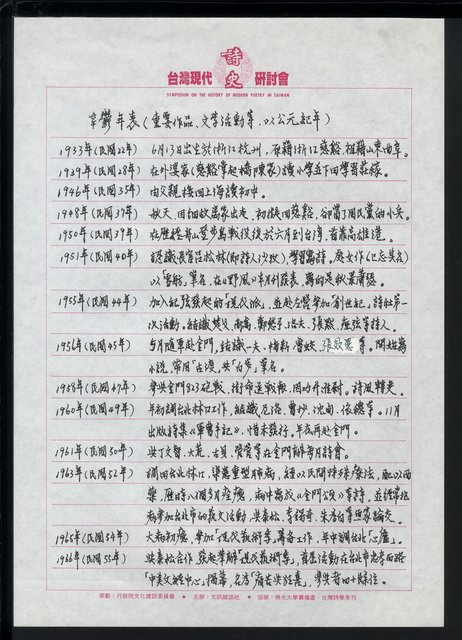 詩史
台灣現代 研討會
SYMPOSIUM ON THE HISTORY OF MODERN POETRY IN TAIWAN
辛鬱年表(重要作品、文學活動等,以公元紀年)
1933年(民國22年) 6月13日出生於浙江杭州,原籍浙江慈谿,祖籍山東曲阜。
1939年(民國28年) 在外婆家(慈谿掌起橋陳家)讀小學並下田學習莊稼。
1946年(民國35年) 由父親接回上海讀初中。
1948年(民國37年) 秋天,因細故離家出走,初擬回慈谿,卻當了國民黨的小兵。
1950年(民國39年) 在歷經舟山登步島戰役後於六月到台灣,首落高雄港。
1951年(民國40年) 認識長官沈松林(即詩人沙牧),學習寫詩。處女作(已忘其名)
以「雪舫」筆名,在《野風》半月刊發表,寫的是秋景蕭瑟。
1955年(民國44年) 加入紀弦發起的「現代派」,並赴左營參加創世紀詩社第一
次活動。結識楚戈、商禽、鄭愁予、洛夫、張默、瘂弦等詩人。
1956年(民國45年) 5月隨軍赴金門,結識一夫、梅新、曹敏、張 等。開始寫
小說,常用「古渡」與「向邇」筆名。
1958年(民國47年) 參與金門823砲戰,銜命送戰報,因功升准尉。詩風轉變。
1960年(民國49年) 年初調台北林口工作,結識尼洛、曹抄、沈甸、依穗等。11月
出版詩集《軍曹手記》,惜未發行。年底再赴金門。
1961年(民國50年) 與丁文智、大荒、古貝、管管等在金門辦每月詩會。
1963年(民國52年) 調回台北林口,染患重型肺病,經以民間特殊療法,配以西
藥,歷時八個多月痊癒。病中寫成《金門頌》等詩,並經常抱
病參加台北市的藝文活動,與秦松、李錫奇、朱為白等畫家論交。
1965年(民國54年) 大病初癒,參加「現代藝術季」籌備工作,年中調台北「心廬」。
1966年(民國55年) 與秦松合作發起舉辦「現代藝術季」,首展活動在台北市忠孝西路
「中美文經中心」揭幕,名為「廣告與推展」,參與者四十餘位。
策劃:行政院文化建設委員會 ● 主辦:文訊雜誌社 ● 協辦:佛光大學籌備處.台灣詩學季刊